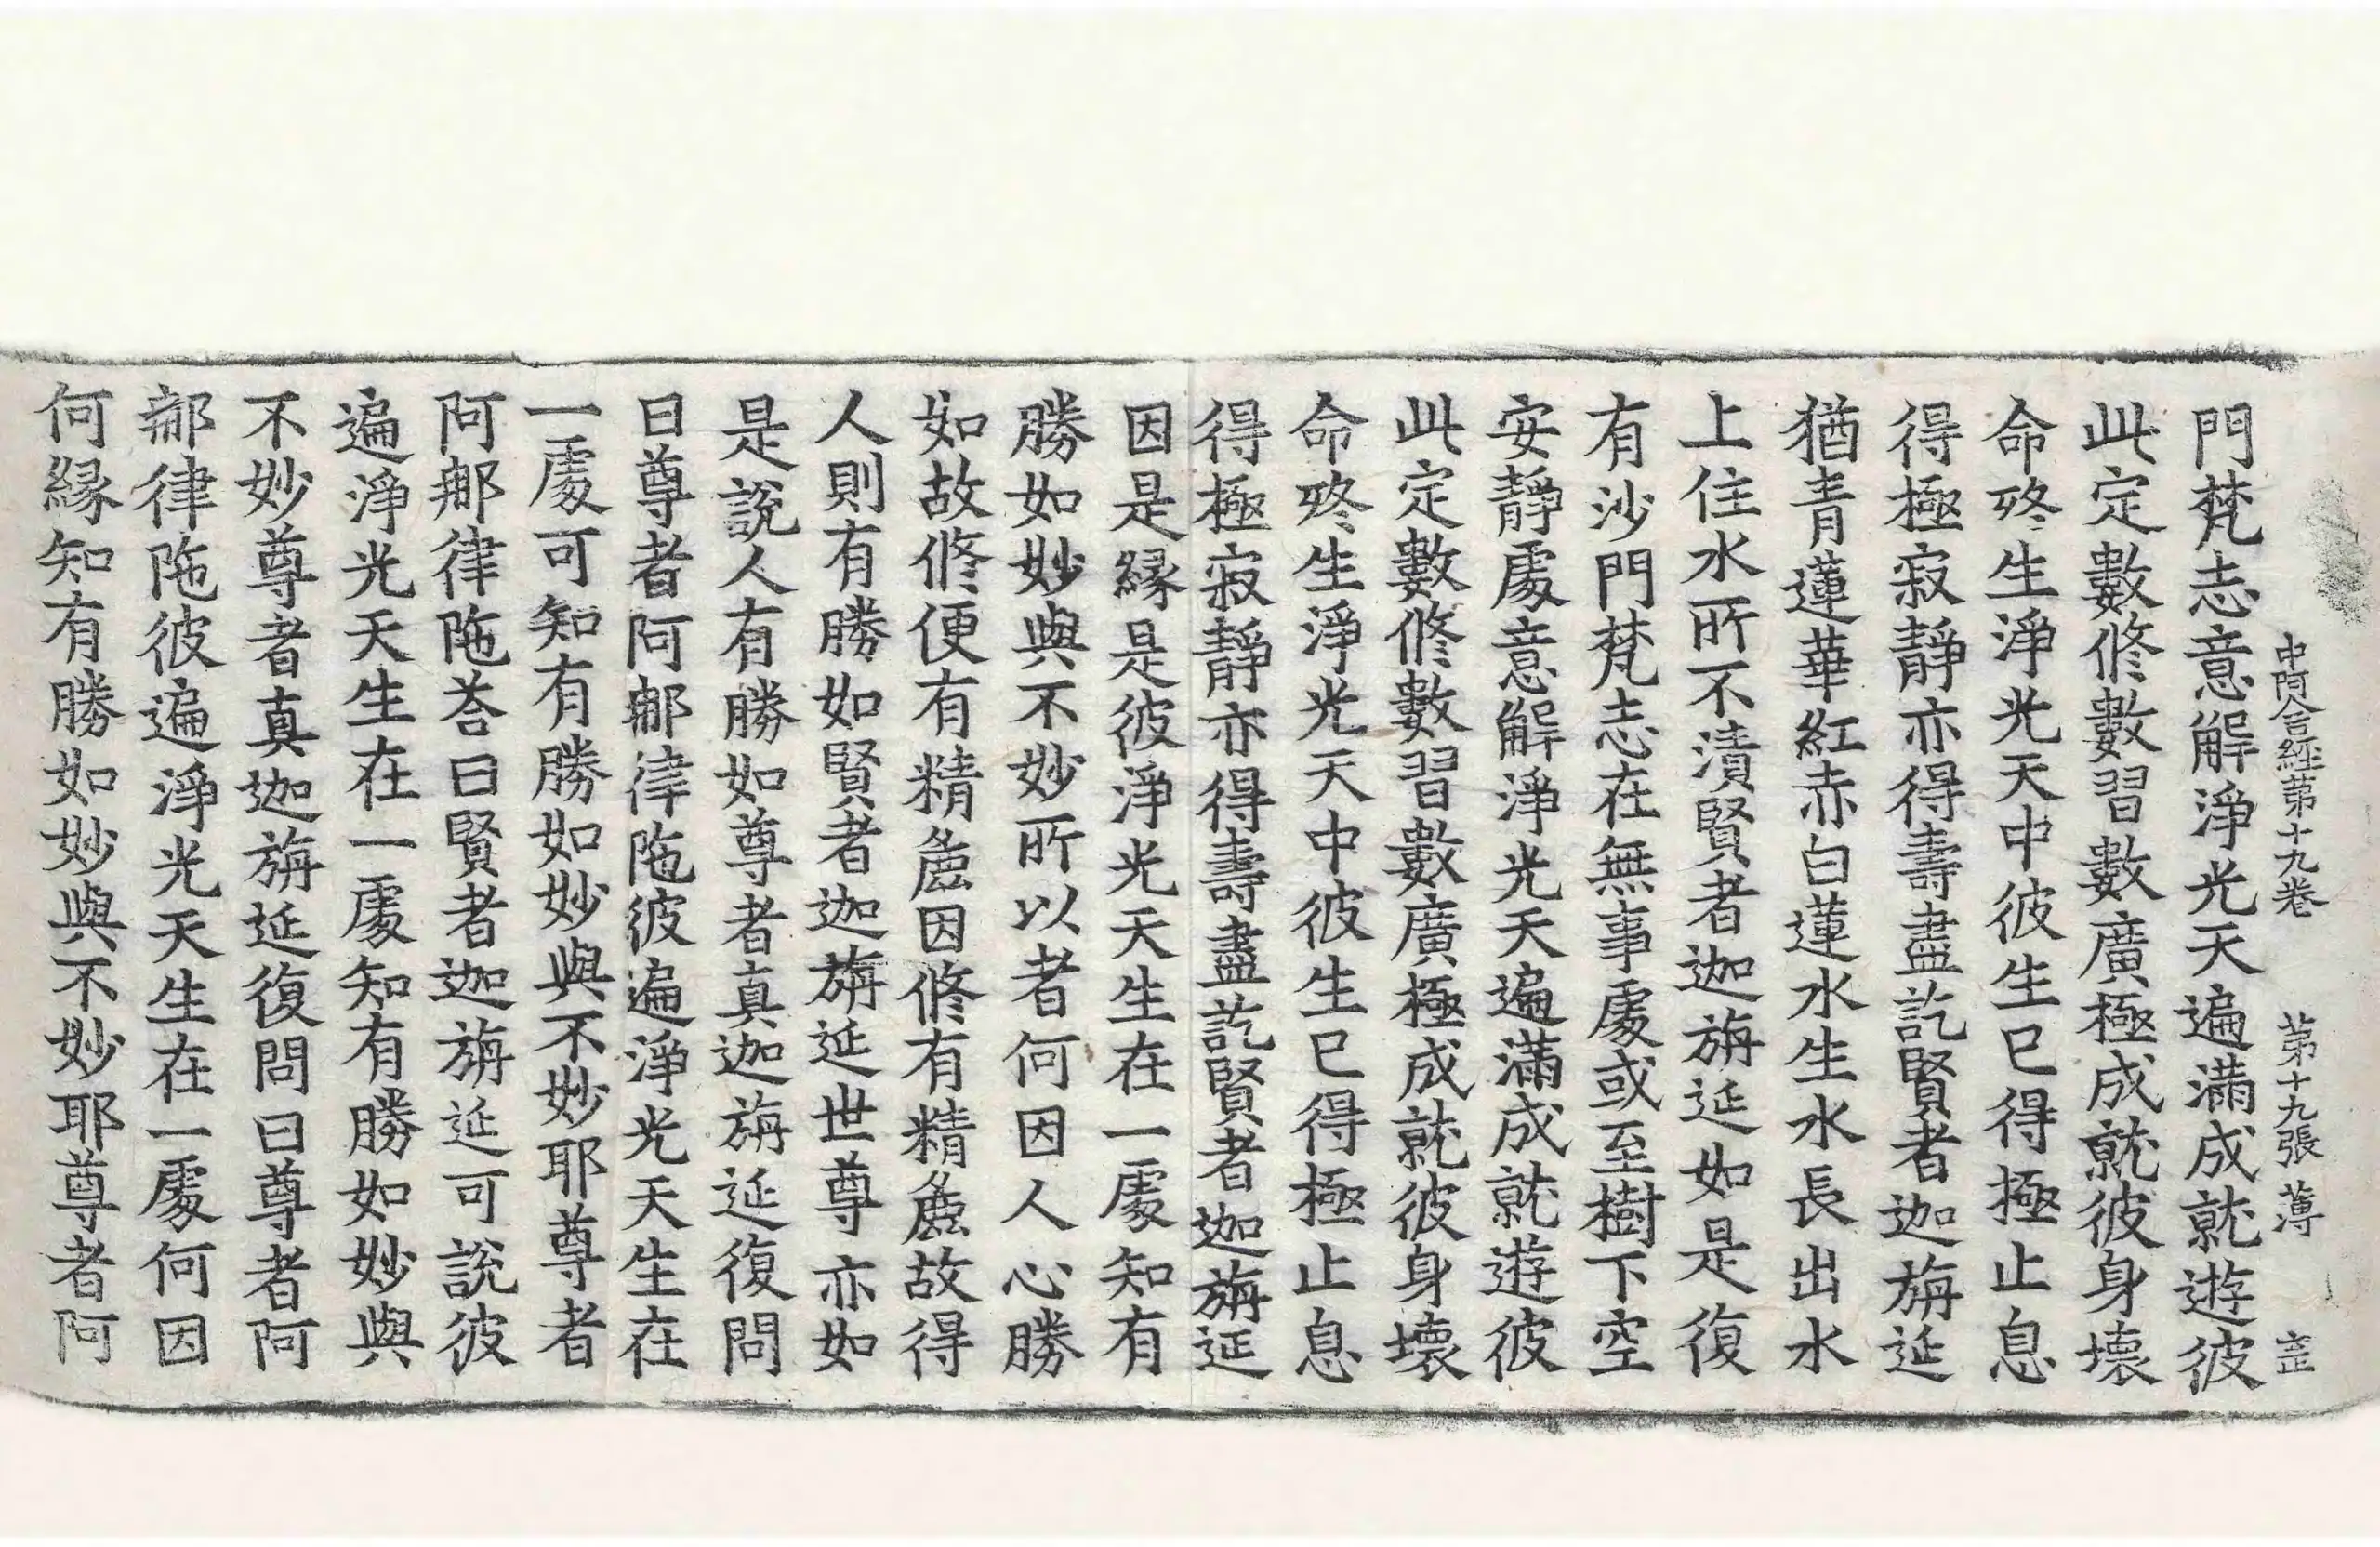 中阿含經第十九卷 第十九張 薄
門梵志意解淨光天遍滿成就遊彼
此定數修數習數廣極成就彼身壞
命終生淨光天中彼生已得極止息
得極寂靜亦得壽盡訖賢者迦旃延
猶青蓮華紅赤白蓮水生水長出水
上住水所不漬賢者迦旃延如是復
有沙門梵志在無事處或至樹下空
安靜處意解淨光天遍滿成就遊彼
此定數修數習數廣極成就彼身壞
命終生淨光天中彼生已得極止息
得極寂靜亦得壽盡訖賢者迦旃延
因是緣是彼淨光天生在一處知有
勝如妙與不妙所以者何因人心勝
如故修便有精麁因修有精麁故得
人則有勝如賢者迦旃延世尊亦如
是說人有勝如尊者真迦旃延復問
曰尊者阿那律陁彼遍淨光天生在
一處可知有勝如妙與不妙耶尊者
阿那律陁荅曰賢者迦旃延可說彼
遍淨光天生在一處知有勝如妙與
不妙尊者真迦旃延復問曰尊者阿
那律陁彼遍淨光天生在一處何因
何緣知有勝如妙與不妙耶尊者阿